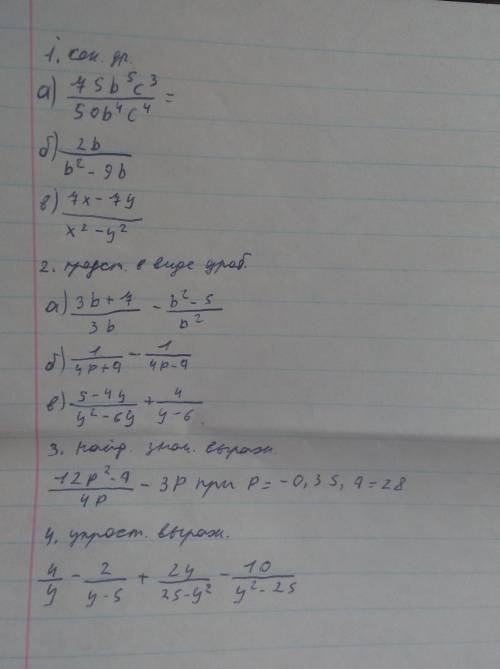 1. сок. др.
а) 75b⁵c³ / 50b⁴c⁴ =
б) 2b / b² - 9b
в) 7x - 7y / x² - y²
2. предст. в виде дроб.
а) 3b + 7 / 3b - b² - 5 / b²
б) 1 / 4p + q - 1 / 4p - q
в) 5 - 4y / y² - 6y + 4 / y - 6
3. найд. знач. выраж.
12p² - q / 4p - 3p при p = -0,35, q = 28
4. упрост. выраж.
4 / y - 2 / y - 5 + 2y / 25 - y² - 10 / y² - 25